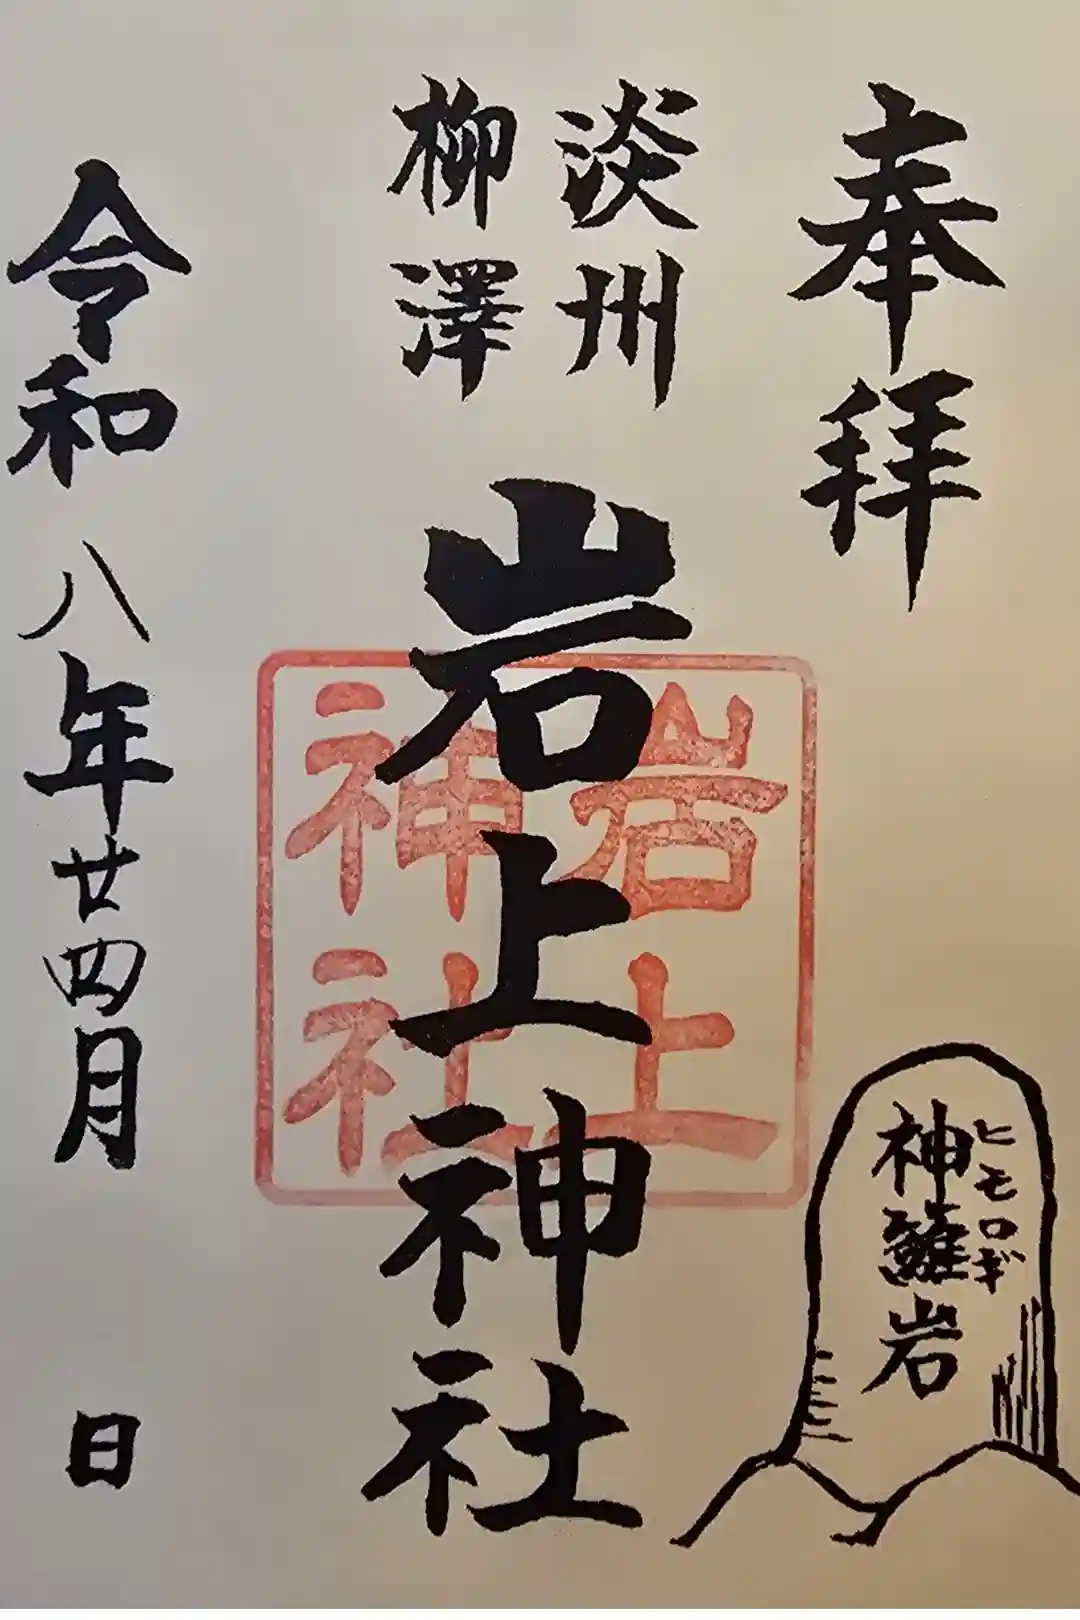 奉拝
淡州
柳澤
岩上神社
岩上
神社
ヒモロギ
神籬岩
令和八年廿四月 日